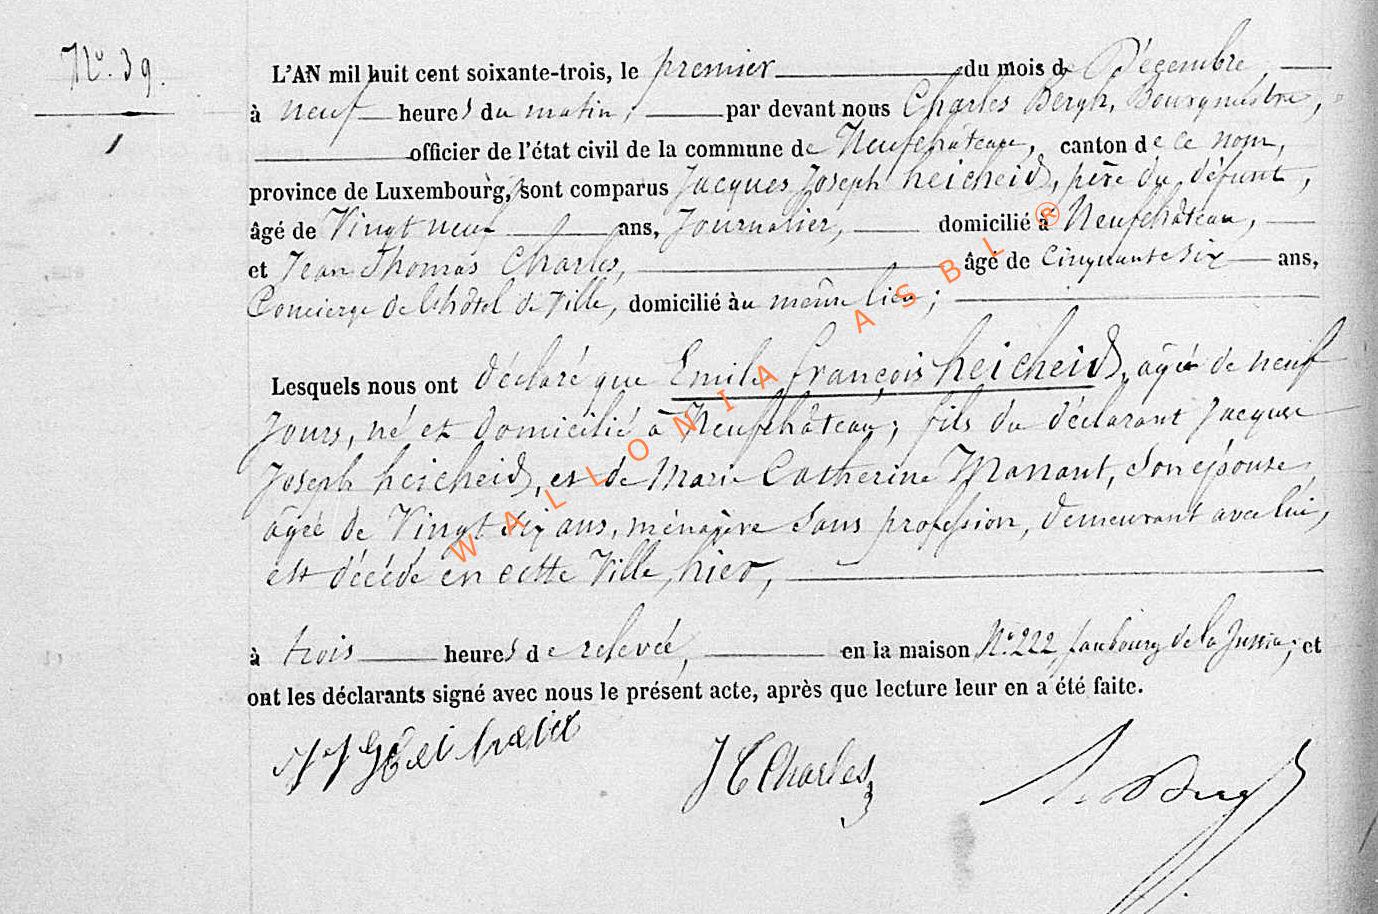 N° 39.
1
L'AN mil huit cent soixante-trois, le premier du mois de Décembre,
à neuf heures du matin, par devant nous Charles Bergh, Bourgmestre,
officier de l'état civil de la commune de Neufchâteau, canton de ce nom,
province de Luxembourg, sont comparus Jacques Joseph heicheid, père du défunt,
âgé de Vingt neuf ans, Journalier, domicilié à Neufchâteau,
et Jean Thomas Charles, âgé de Cinquante six ans,
Concierge de l'hôtel de Ville, domicilié au même lieu ;
Lesquels nous ont déclaré que Emile françois heicheid, âgé de neuf
Jours, né et domicilié à Neufchâteau ; fils du déclarant Jacques
Joseph heicheid, et de Marie Catherine Manant, Son épouse,
âgée de Vingt six ans, ménagère Sans profession, demeurant avec lui,
est décédé en cette Ville, hier,
à trois heures de relevée, en la maison N° 222, faubourg de la ; et
ont les déclarants signé avec nous le présent acte, après que lecture leur en a été faite.
J C Charles
WALLONIA ASBL ®